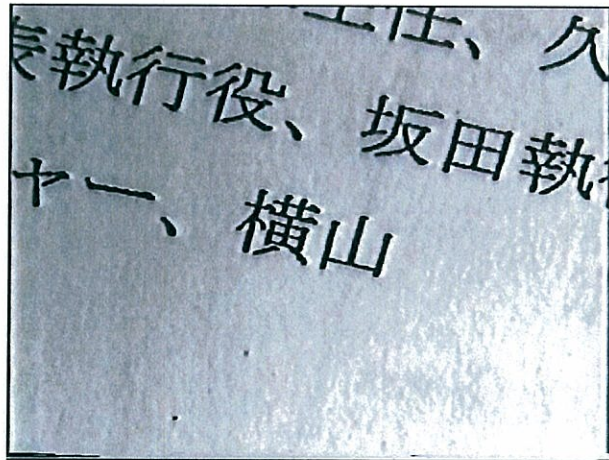 主任、久
表執行役、坂田執
ャー、横山